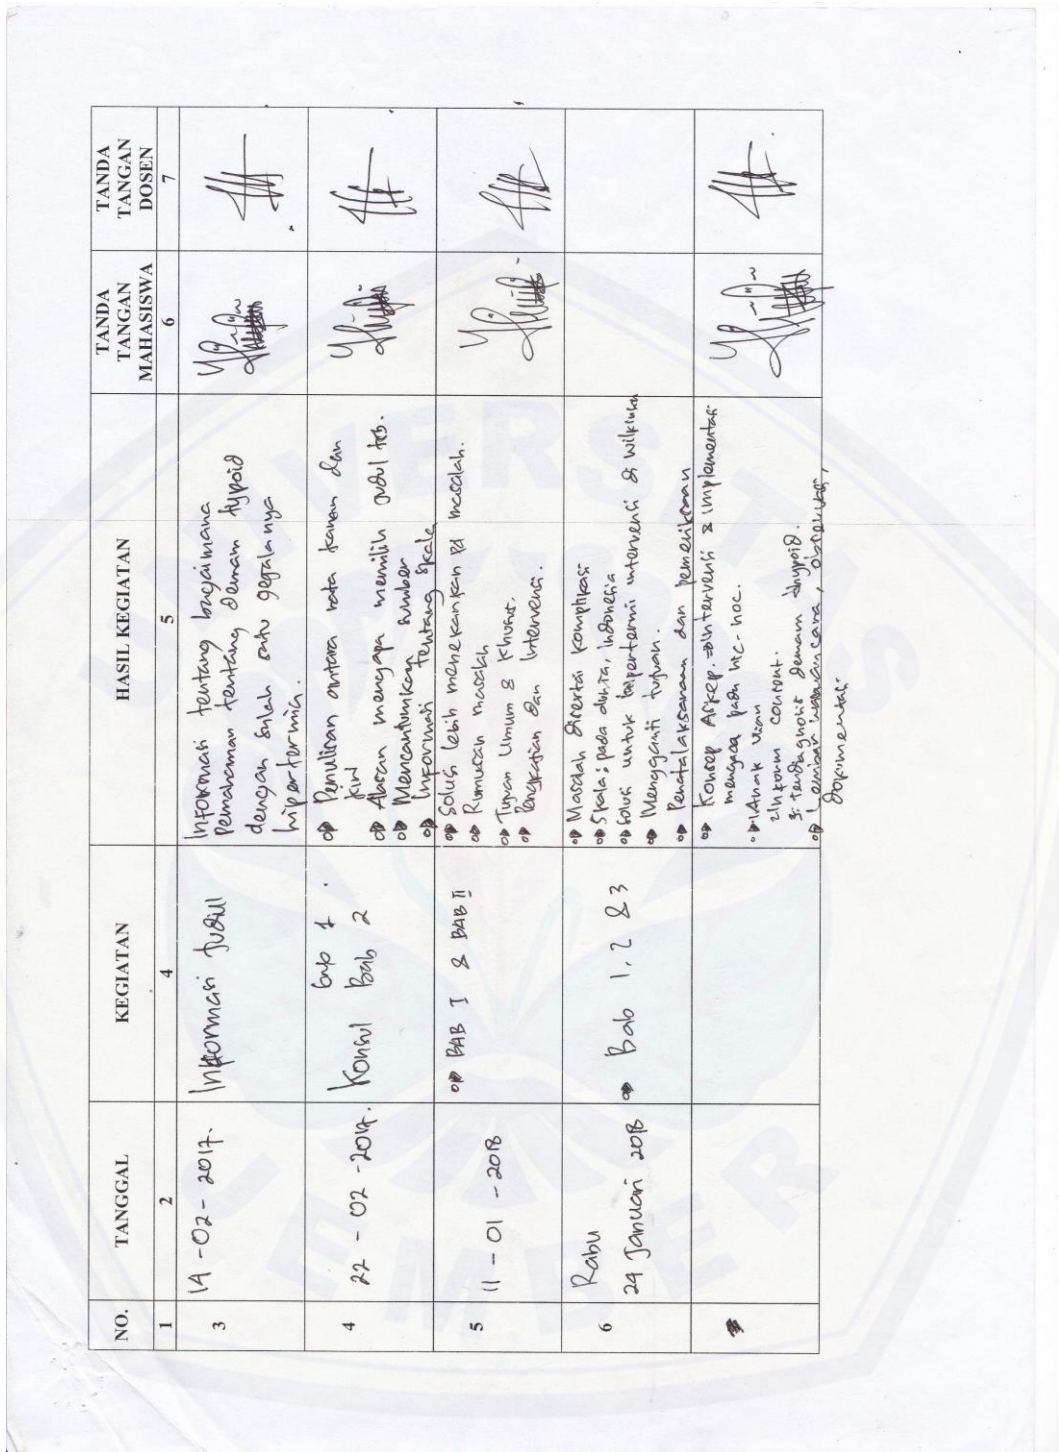 NO.
TANGGAL
KEGIATAN
HASIL KEGIATAN
TANDA
TANGAN
MAHASISWA
TANDA
TANGAN
DOSEN
1
2
4
5
6
7
3
14 - 02 - 2017.
Informasi Judul
Informasi tentang bagaimana
Pemahaman tentang demam typoid
dengan salah satu gegalanya
hipertermia.
4
22 - 02 - 2017.
bab 1.
Konsul Bab 2
Penulisan antara rata kanan dan
kiri
Alasan mengapa memilih judul tsb.
Mencantumkan sumber
Informasi tentang skala
5
11 - 01 - 2018
BAB I & BAB II
Solusi lebih menekankan pd masalah.
Rumusan masalah
Tujuan Umum & Khusus.
Pengkajian dan Intervensi.
6
Rabu
24 Januari 2018
Bab 1, 2 & 3
Masalah disertai komplikasi
Skala: pada dunia, Indonesia
Solusi untuk hipertermi intervensi di
Mengganti tujuan.
Penatalaksanaan dan pemeriksaan
Konsep Askep. Intervensi & implementasi
mengacu pada nic-noc.
1. Anak usia
2. Inform consent.
3. terdiagnosis demam thypoid.
Lembar wawancara, observasi,
Dokumentasi
UNIVERSITAS
JEMBER